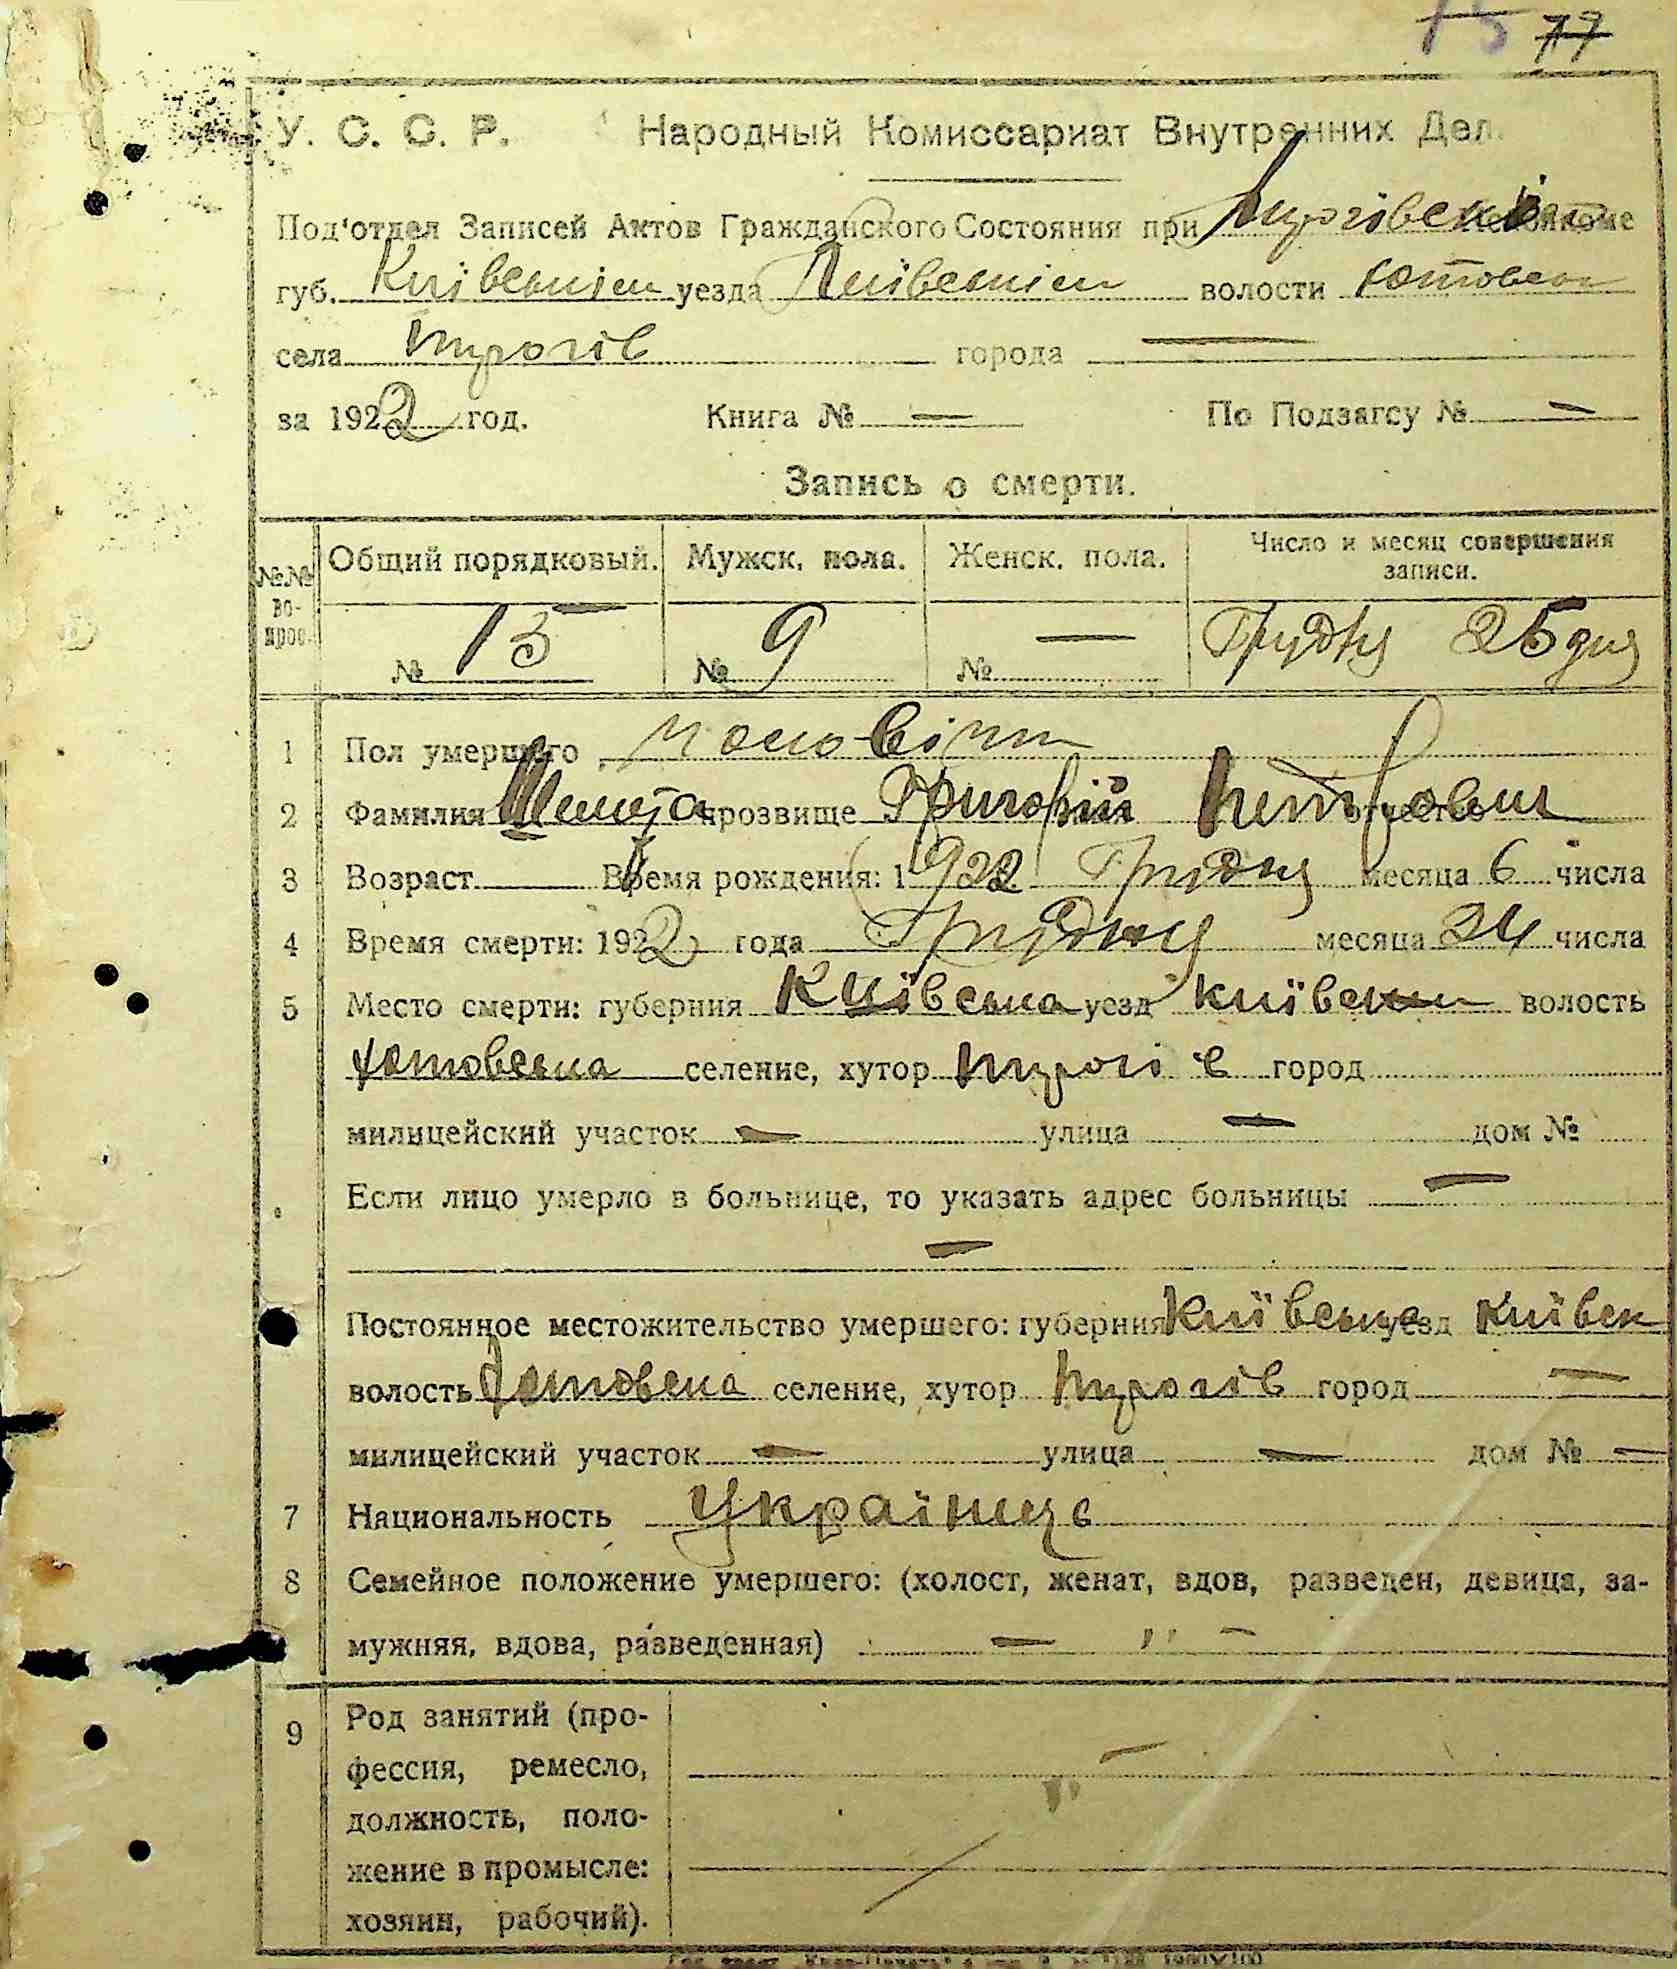 15 77
У. С. С. Р. Народный Комиссариат Внутренних Дел.
Под'отдел Записей Актов Гражданского Состояния при Пирогівськім исполкоме
губ. Київськіи уезда Київськіи волости Хотовськ
села Пирогів города —
за 1922 год. Книга № — По Подзагсу № —
Запись о смерти.
№№ вопрос. Общий порядковый. Мужск. пола. Женск. пола. Число и месяц совершения записи.
№ 15 № 9 № — Грудня 25 дня
1 Пол умершего чоловічи
2 Фамилия прозвище Григорій Петрович
3 Возраст Время рождения: 1922 Грудня месяца 6 числа
4 Время смерти: 1922 года Грудня месяца 24 числа
5 Место смерти: губерния Київська уезд Київськи волость
Хотовська селение, хутор Пирогів город
милицейский участок — улица — дом №
Если лицо умерло в больнице, то указать адрес больницы —
—
Постоянное местожительство умершего: губерния Київська уезд Київськ
волость Хотовська селение, хутор Пирогів город —
милицейский участок — улица — дом № —
7 Национальность Українець
8 Семейное положение умершего: (холост, женат, вдов, разведен, девица, за-
мужняя, вдова, разведенная) — " —
9 Род занятий (про-
фессия, ремесло, —
должность, поло- "
жение в промысле:
хозяин, рабочий).